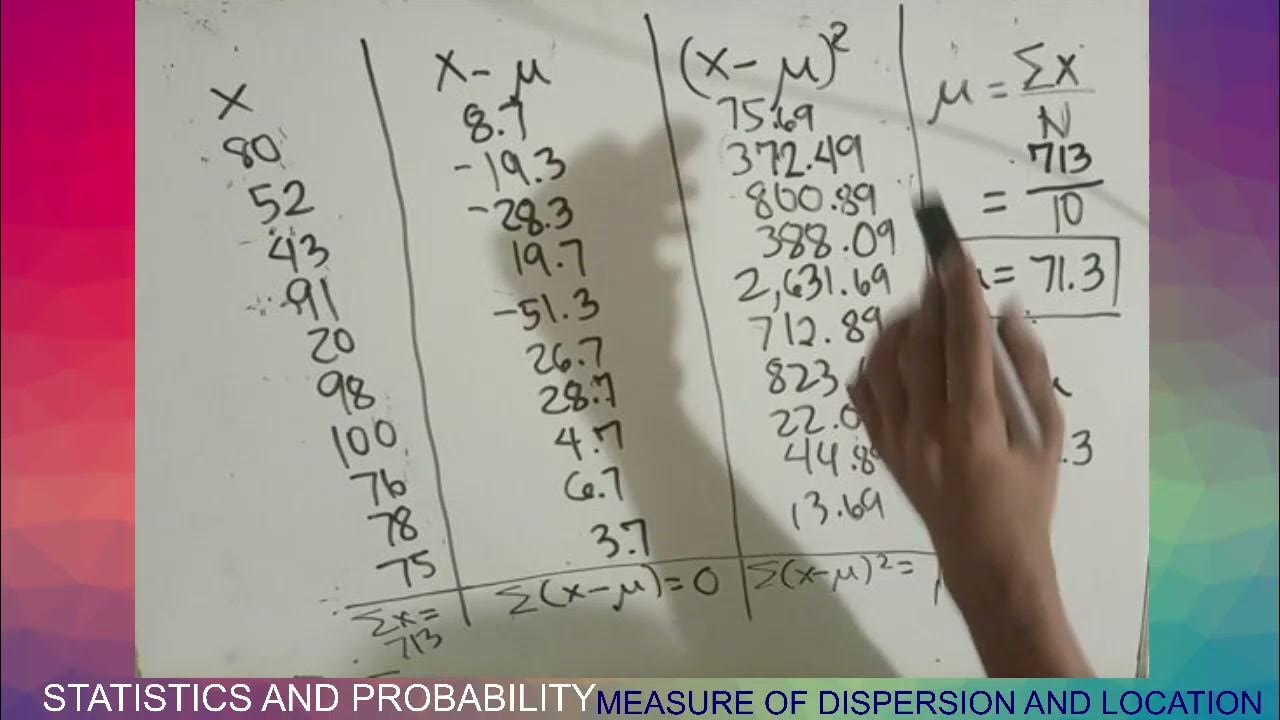 x | x - μ | (x - μ)² | μ = Σx / N
80 | 8.7 | 75.69 | = 713 / 10
52 | -19.3 | 372.49 | = 71.3
43 | -28.3 | 800.89
91 | 19.7 | 388.09
20 | -51.3 | 2,631.69
98 | 26.7 | 712.89
100 | 28.7 | 823.
76 | 4.7 | 22.0
78 | 6.7 | 44.8 | .3
75 | 3.7 | 13.69
Σx = 713 | Σ(x-μ) = 0 | Σ(x-μ)² =
STATISTICS AND PROBABILITY MEASURE OF DISPERSION AND LOCATION